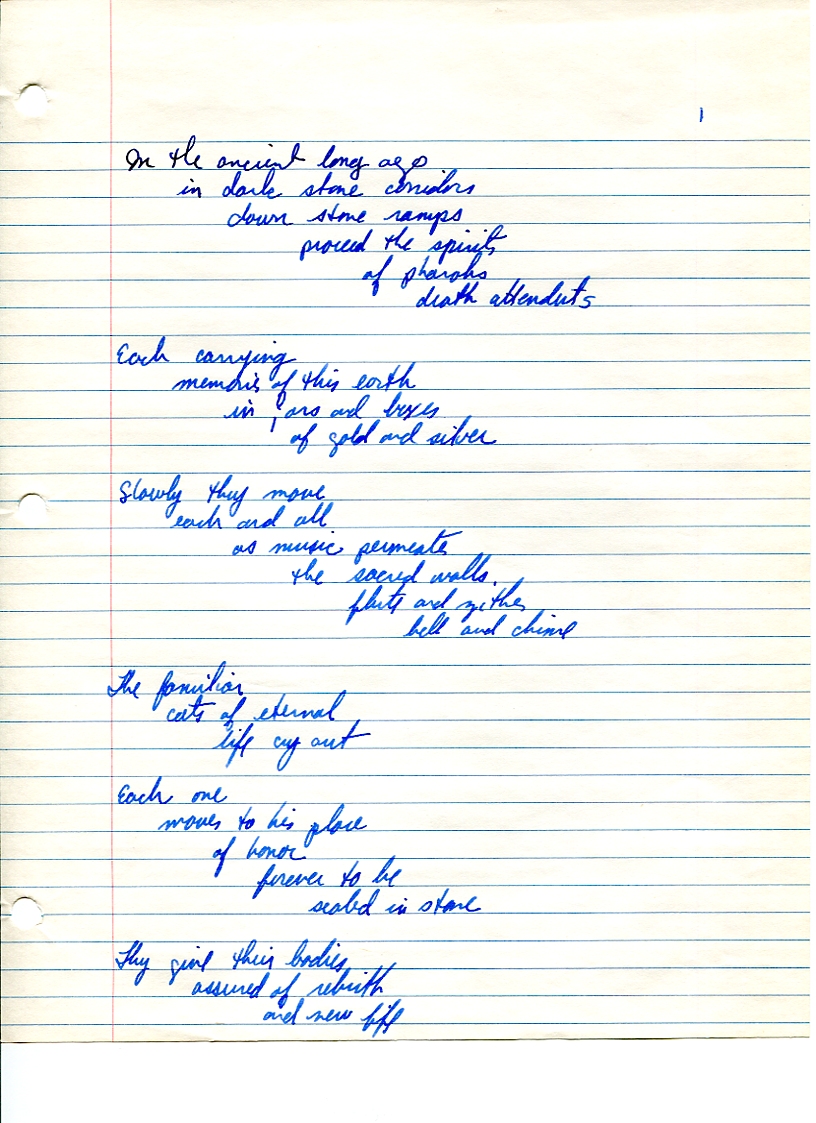 1
In the ancient long ago
in dark stone corridors
down stone ramps
proceed the spirits
of pharohs
death attendnts
Each carrying
memories of this earth
in jars and boxes
of gold and silver
Slowly they move
each and all
as music permeates
the sacred walls.
flute and zither
bell and chime
The familiar
cats of eternal
life cry out
Each one
moves to his place
of honor
forever to be
sealed in stone
They give their bodies
assured of rebirth
and new life